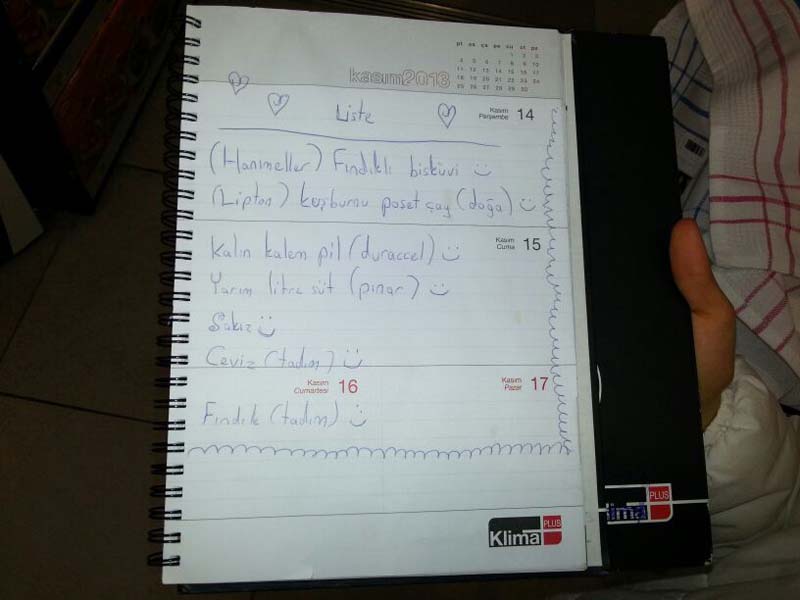 kasım2013
pt sa ça pe cu ct pz
1 2 3
4 5 6 7 8 9 10
11 12 13 14 15 16 17
18 19 20 21 22 23 24
25 26 27 28 29 30
Liste
Kasım
Perşembe 14
(Hanımeller) Fındıklı bisküvi
(Lipton) kuşburnu poşet çay (doğa)
Kasım
Cuma 15
Kalın kalem pil (duraccel)
Yarım litre süt (pınar)
Sakız
Ceviz (tadım)
Kasım
Cumartesi 16
Kasım
Pazar 17
Fındık (tadım)
Klima PLUS
lima PLUS